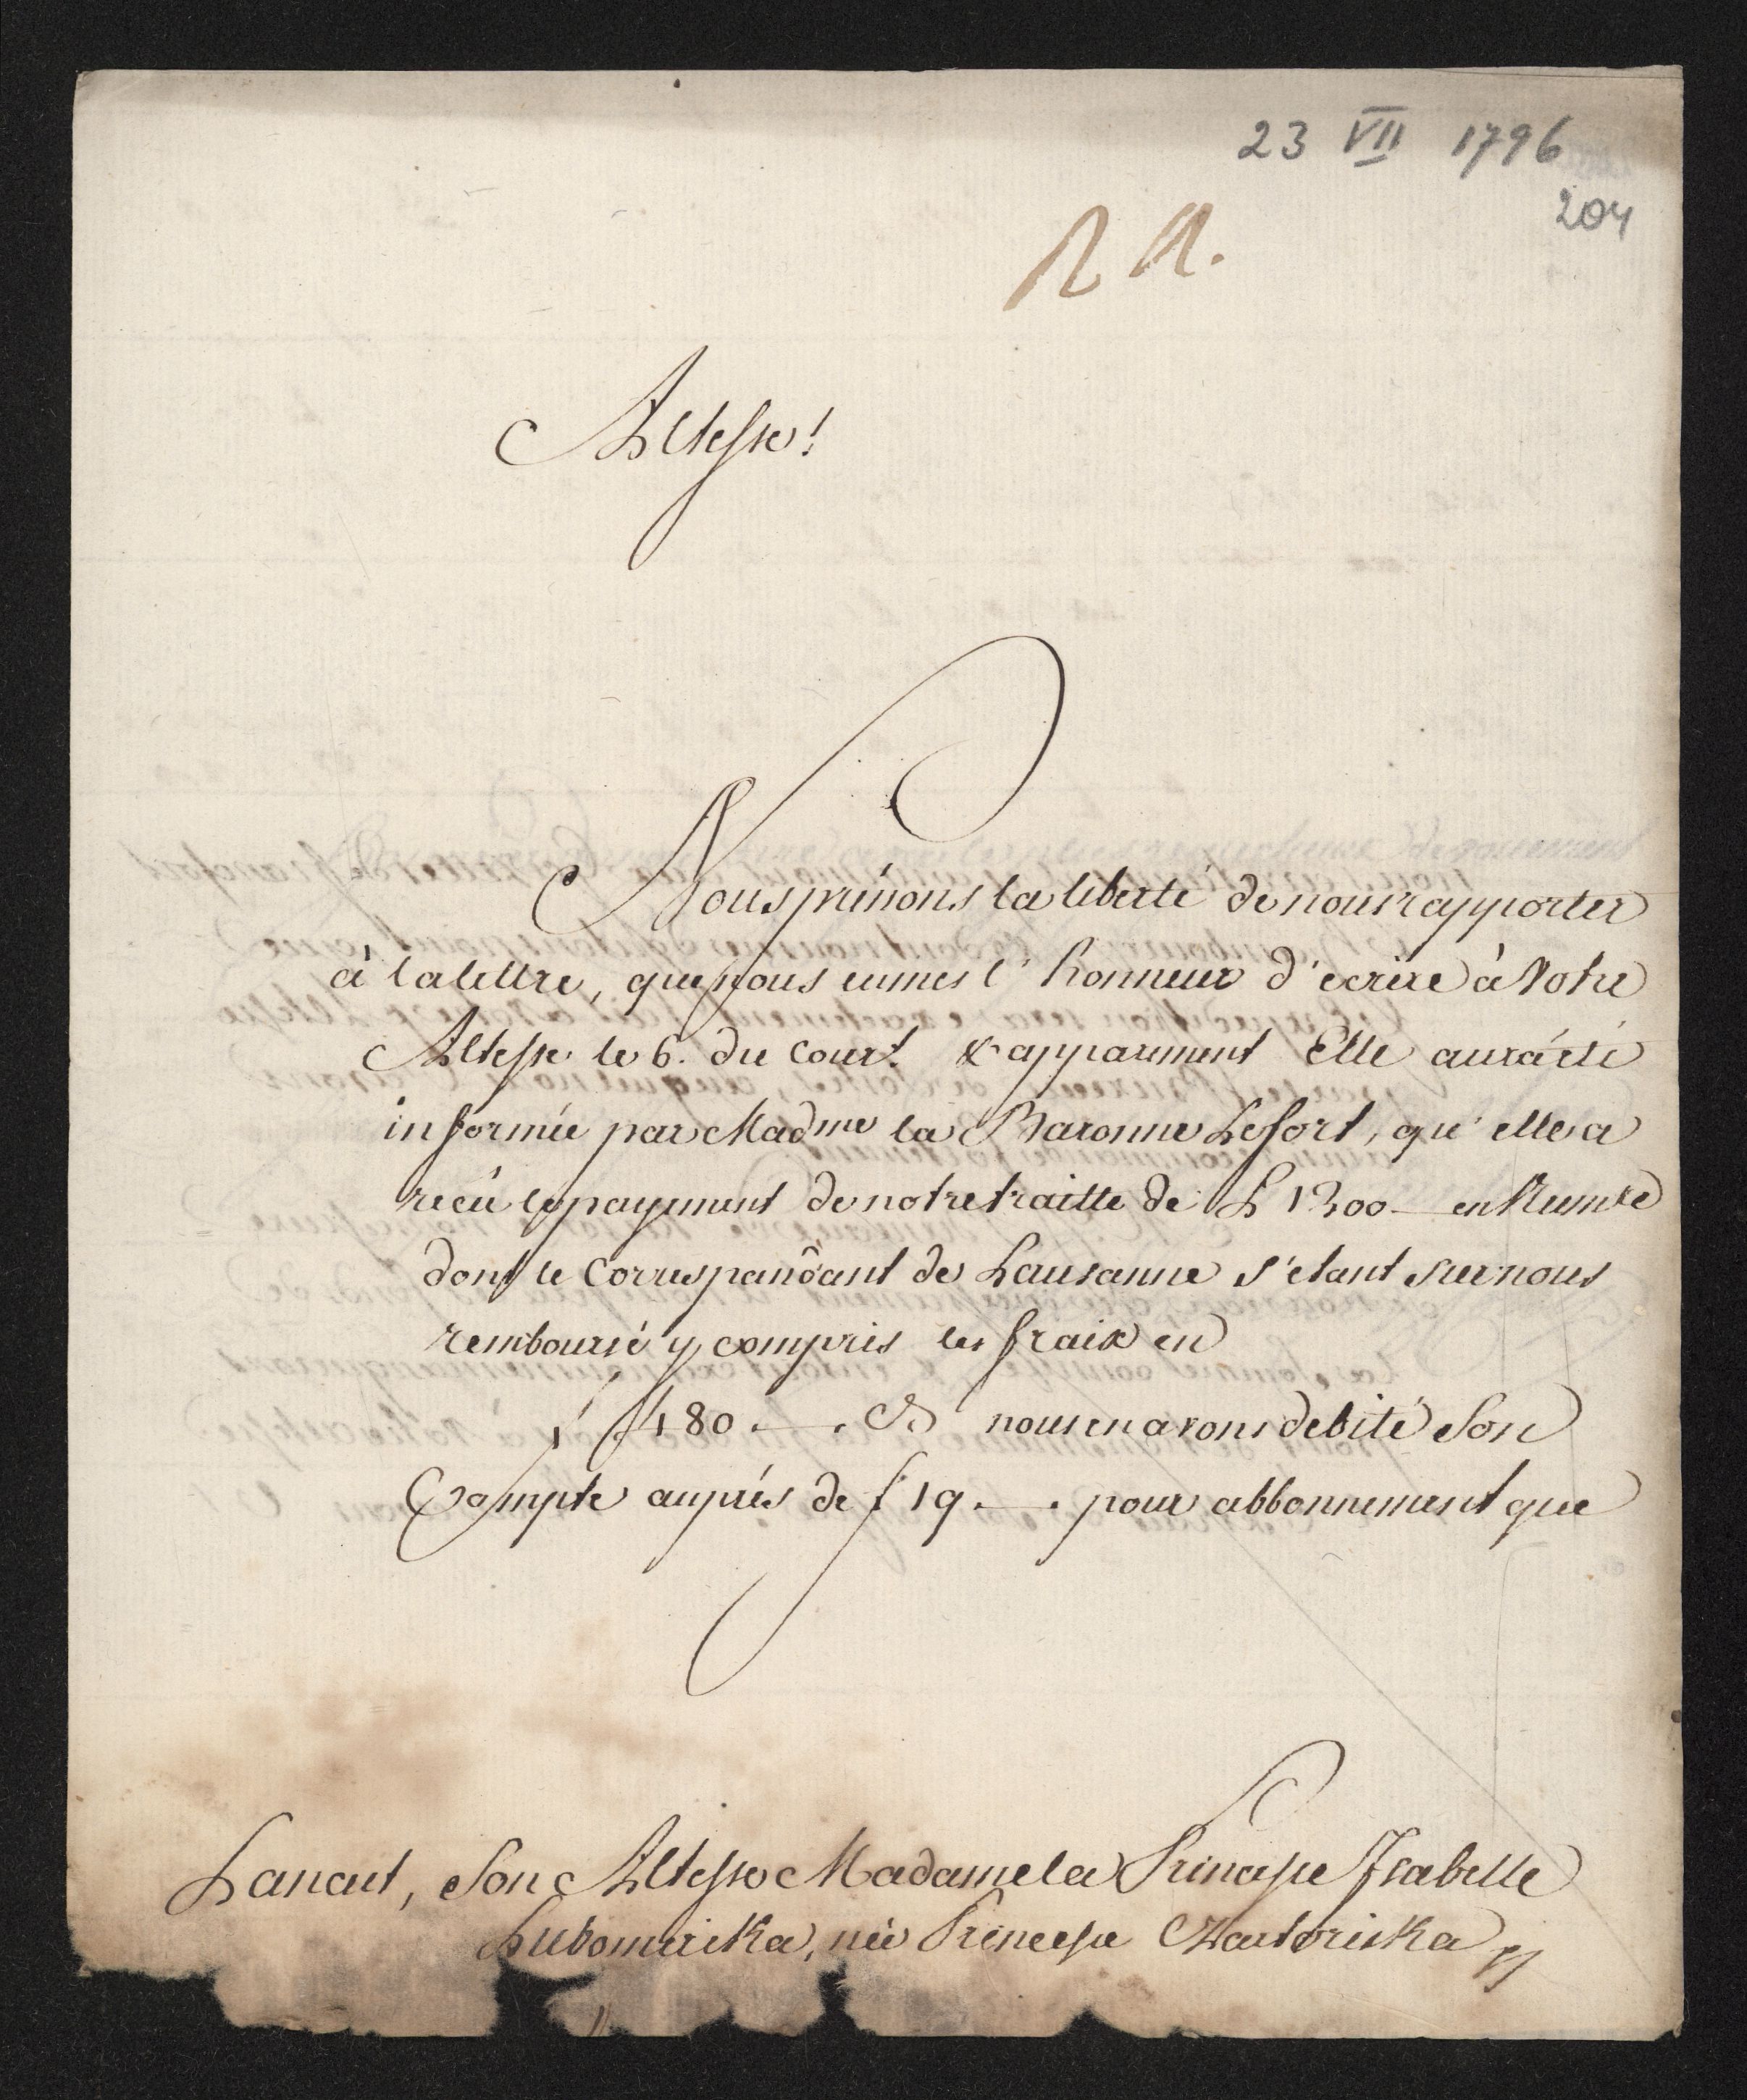 23 VII 1796
204
R A.
Altesse!
Nous prénons la liberté de nous rapporter
à la lettre, que nous eumes l'honneur d'ecrire à Votre
Altesse le 6. du Court. & apparement Elle aura été
informée par Madme la Baronne Lefort, qu'elle a
reçû le payement de notre traitte de L 1300 — en
dont le Correspondant de Lausanne s'etant sur nous
remboursé y compris les fraix en
f 480.—. nous en avons debité Son
Compte auprés de f 19.—. pour abbonnement que
Lancut, Son Altesse Madame la Princesse Isabelle
Lubomirska, née Princesse Czartoriska